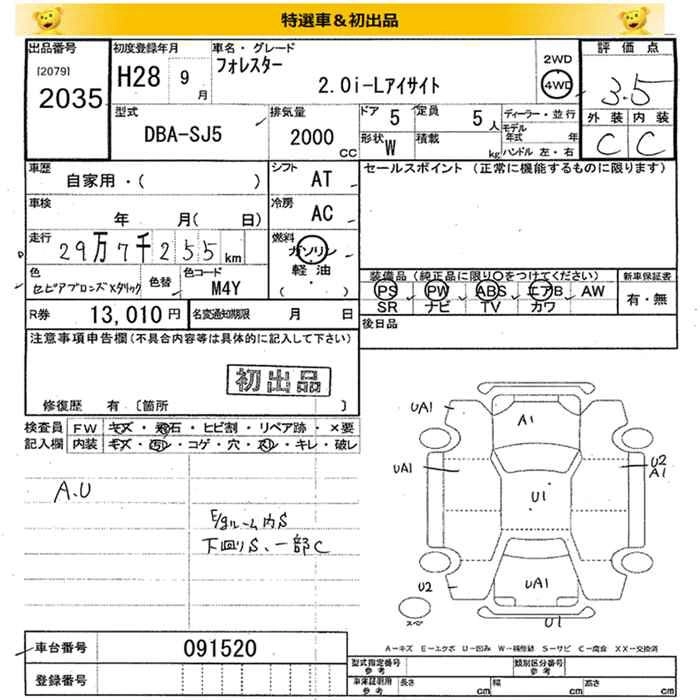 特選車＆初出品
出品番号 [2079] 2035
初度登録年月 H28 9月
車名・グレード フォレスター 2.0i-Lアイサイト
2WD 4WD
評価点 3.5
外装 内装
C C
型式 DBA-SJ5
排気量 2000 CC
ドア 5 定員 5人
形状 W 積載 kg
ディーラー・並行
モデル年式 年
ハンドル 左・右
車歴 自家用・( )
シフト AT
セールスポイント (正常に機能するものに限ります)
車検 年 月( 日)
冷房 AC
走行 29万7千255km
燃料 ガソリン 軽油 ( )
色 セピアブロンズメタリック 色替
色コード M4Y
装備品 (純正品に限り○をつけてください)
PS PW ABS エアB AW
SR ナビ TV カワ
新車保証書 有・無
R券 13,010円
名変通知期限 月 日
後日品
注意事項申告欄(不具合内容等は具体的に記入して下さい)
初出品
修復歴 有 [箇所 ]
検査員 FW キズ・飛石・ヒビ割・リペア跡・×要
記入欄 内装 キズ・汚レ・コゲ・穴・スレ・キレ・破レ
A.U
E/gルーム内S
下回りS、一部C
UA1 A1
UA1 U1 U2 A1
U2 UA1
スペ U1
A-キズ E-エクボ U-凹み W-補修跡 S-サビ C-腐食 XX-交換済
車台番号 091520
登録番号
型式指定番号 参考
類別区分番号 参考
車庫証明用 参考 長さ cm 幅 cm 高さ cm